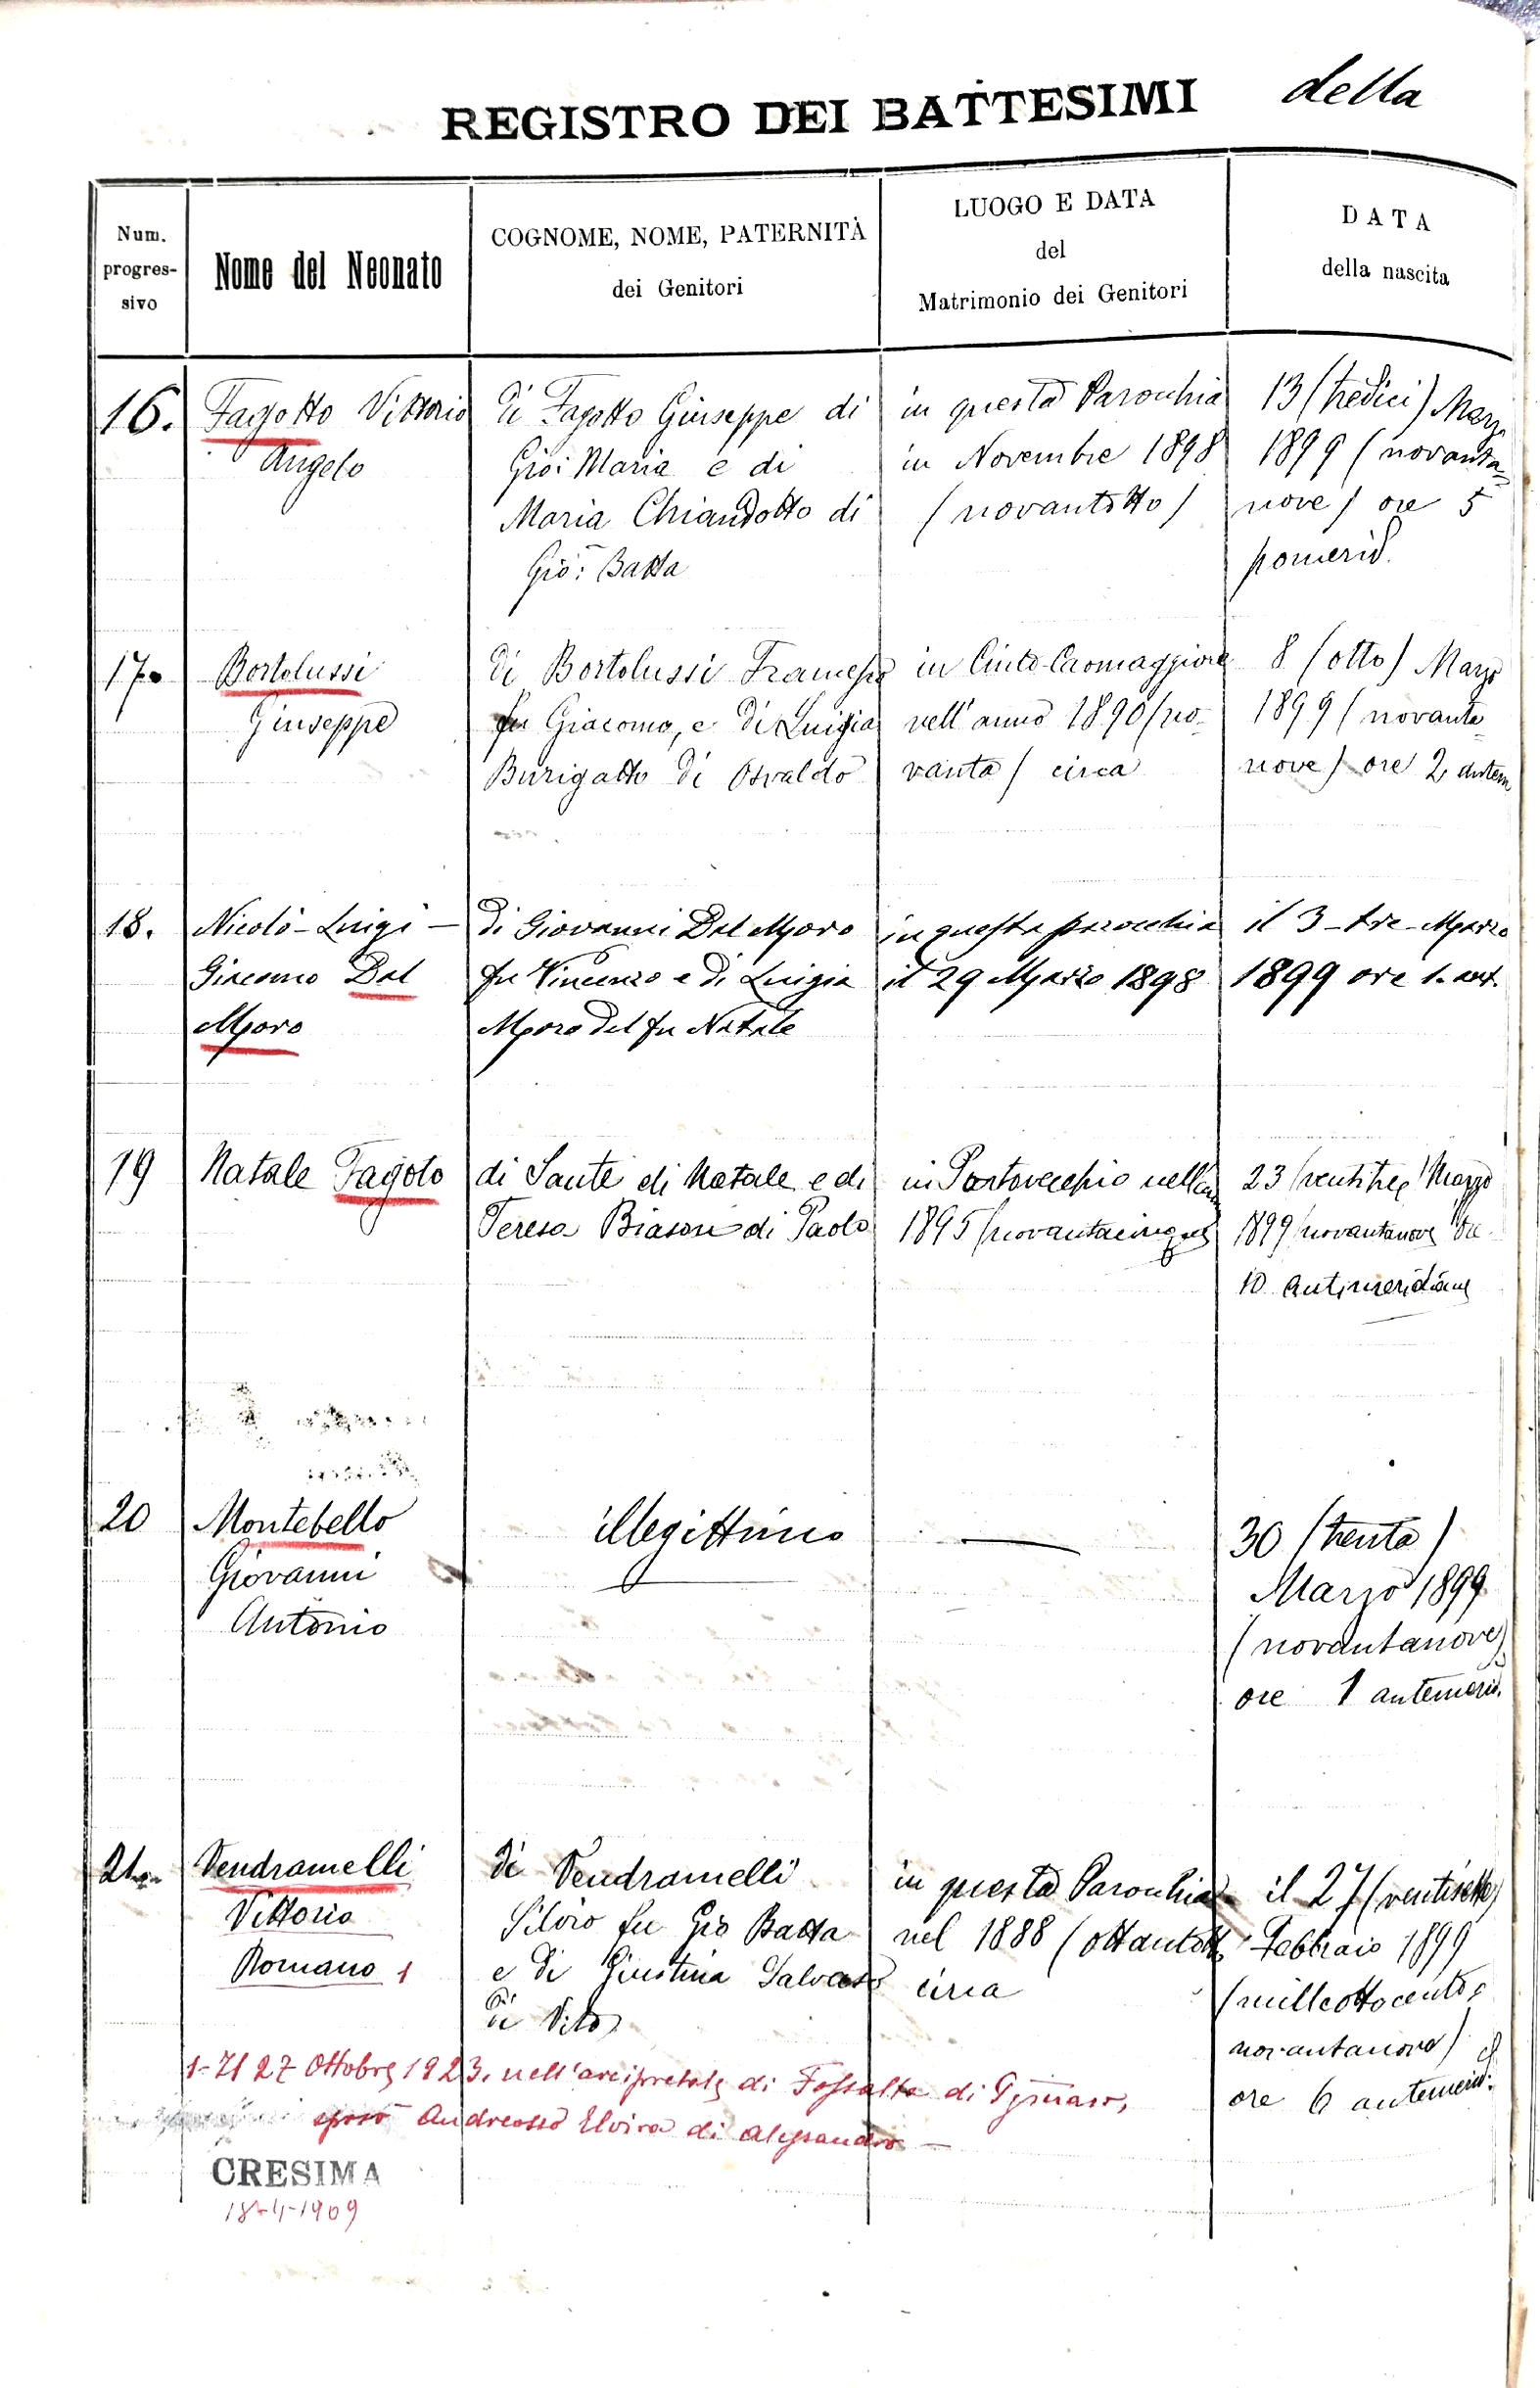 REGISTRO DEI BATTESIMI della
Num.
progres-
sivo
Nome del Neonato
COGNOME, NOME, PATERNITÀ
dei Genitori
LUOGO E DATA
del
Matrimonio dei Genitori
DATA
della nascita
16.
Fagotto Vittorio
Angelo
di Fagotto Giuseppe di
Gio: Maria e di
Maria Chiandotto di
Gio: Batta
in questa Parochia
in Novembre 1898
(novantotto)
13 (tredici) Marzo
1899 (novanta-
nove) ore 5
pomerid.
17.
Bortolussi
Giuseppe
di Bortolussi Francesco
fu Giacomo, e di Luigia
Burigatto di Osvaldo
in Cinto Caomaggiore
nell'anno 1890 (no-
vanta) circa
8 (otto) Marzo
1899 (novanta-
nove) ore 2 antem
18.
Nicolò - Luigi -
Giacomo Dal
Moro
di Giovanni Dal Moro
fu Vincenzo e di Luigia
Moro del fu Natale
in questa parocchia
il 29 Marzo 1898
il 3 - tre - Marzo
1899 ore 1. ant.
19
Natale Fagoto
di Sante di Natale e di
Teresa Biason di Paolo
in Portovecchio nell'an
1895 (novantacinque)
23 (ventitre) Marzo
1899 (novantanove) Ore
10 Antimeridiane
20
Montebello
Giovanni
Antonio
illegittimo
30 (trenta)
Marzo 1899
(novantanove)
ore 1 antemerid.
21.
Vendramelli
Vittorio
Romano 1
di Vendramelli
Silvio fu Gio Batta
e di Giustina Salvaso
di Vito
in questa Parochia
nel 1888 (ottantott
circa
il 27 (ventisette)
Febbraio 1899
(milleottocento
novantanove)
ore 6 antemerid.
1- Il 27 Ottobre 1923. nell'arcipretale di Fossalta di Portogruaro,
sposò Andreosso Elvira di Alessandro -
CRESIMA
18-4-1909